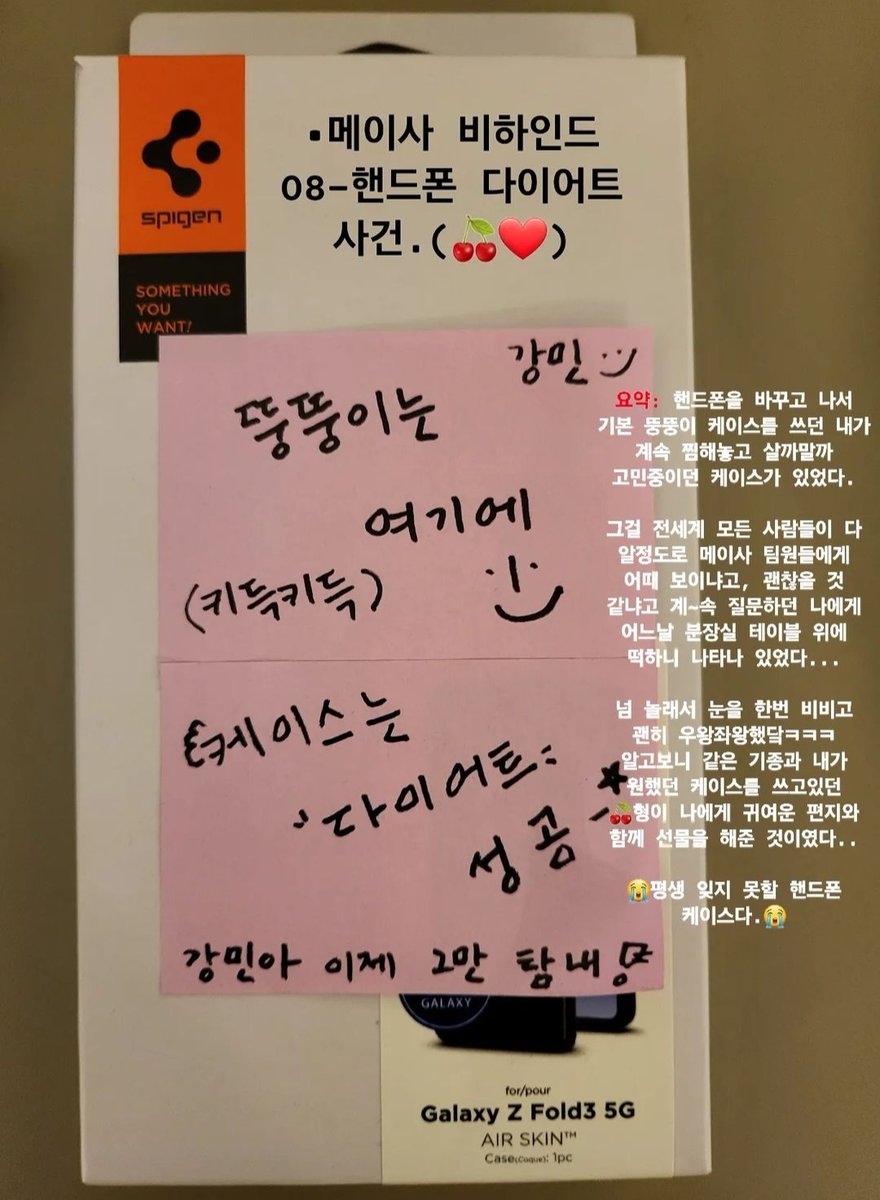 •메이사 비하인드
08-핸드폰 다이어트
사건.(🍒❤️)
spigen
SOMETHING
YOU
WANT!
강민
뚱뚱이는
여기에
(키득키득)
케이스는
다이어트
성공
강민아 이제 그만 탐내
요약: 핸드폰을 바꾸고 나서
기본 뚱뚱이 케이스를 쓰던 내가
계속 찜해놓고 살까말까
고민중이던 케이스가 있었다.
그걸 전세계 모든 사람들이 다
알정도로 메이사 팀원들에게
어때 보이냐고, 괜찮을 것
같냐고 계~속 질문하던 나에게
어느날 분장실 테이블 위에
떡하니 나타나 있었다...
넘 놀래서 눈을 한번 비비고
괜히 우왕좌왕했닼ㅋㅋㅋ
알고보니 같은 기종과 내가
원했던 케이스를 쓰고있던
🍒형이 나에게 귀여운 편지와
함께 선물을 해준 것이였다..
😭평생 잊지 못할 핸드폰
케이스다.😭
GALAXY
for/pour
Galaxy Z Fold3 5G
AIR SKIN™
Case(Coque): 1pc